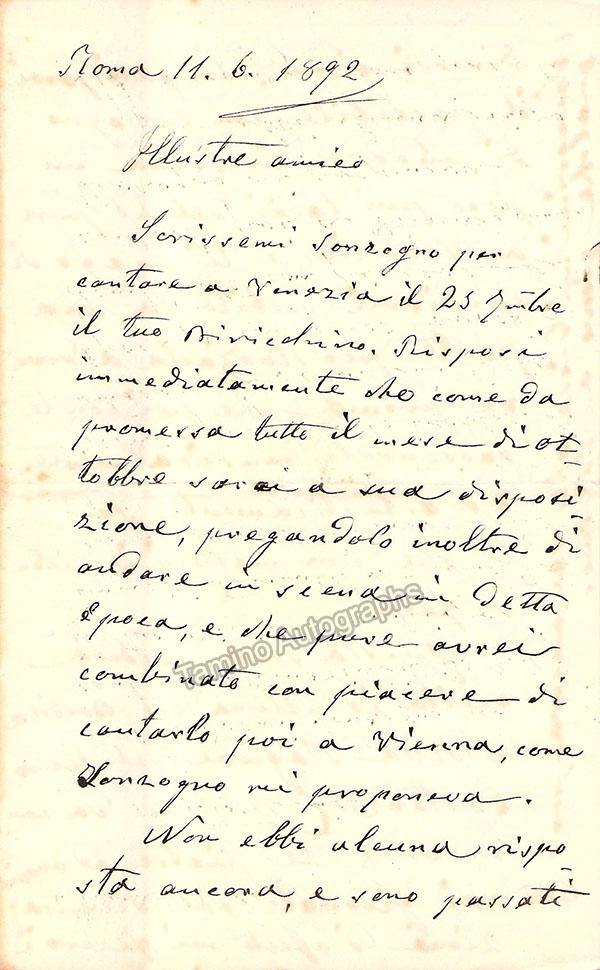 Roma 11. 6. 1892
Illustre amico
Scrissemi Sonzogno per
cantare a Venezia il 25 7mbre
il tuo Birichino. Risposi
immediatamente che come da
promessa tutto il mese di ot-
tobbre sarei a sua disposi-
zione, pregandolo inoltre di
andare in scena in detta
Epoca, e che pure avrei
combinato con piacere di
cantarlo poi a Vienna, come
Sonzogno mi proponeva.
Non ebbi alcuna rispo-
sta ancora, e sono passati
Tamino Autographs